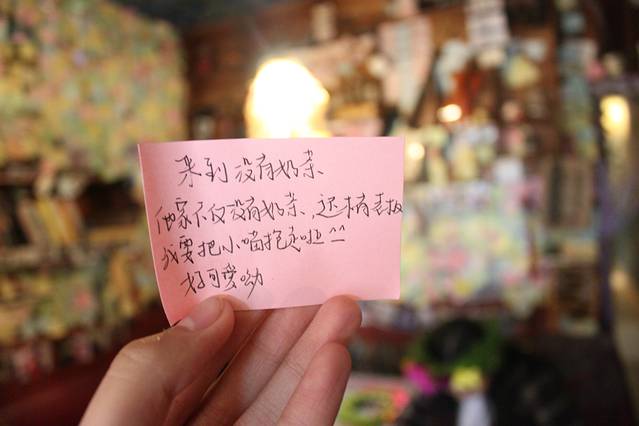 来到没有奶茶、
他家不仅没有奶茶、还木有老板
我要把小喵抱走啦^^
好可愛呦